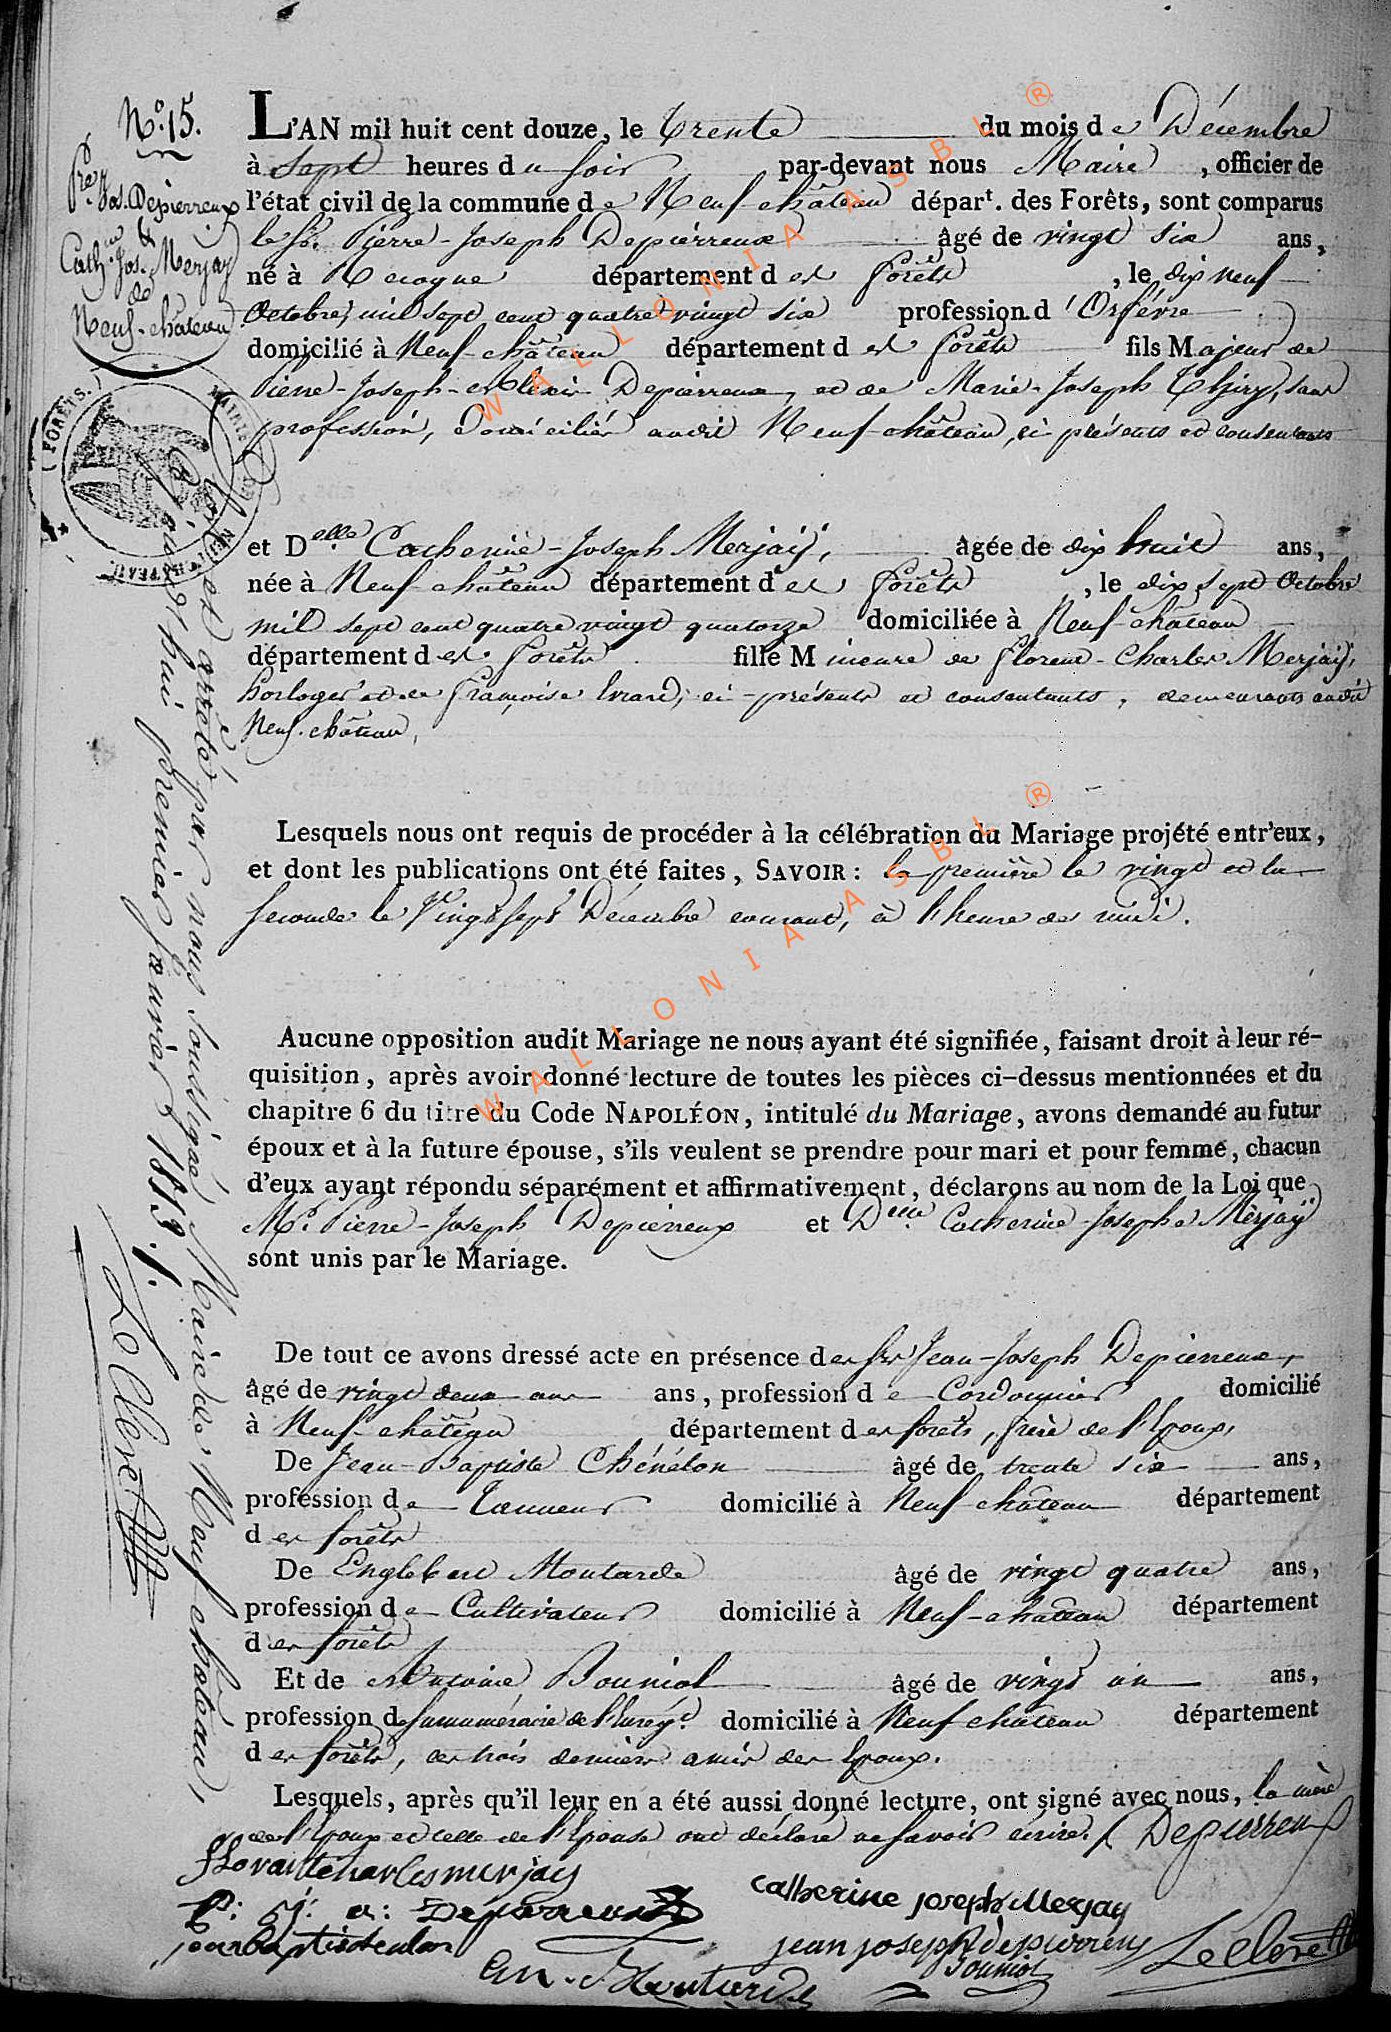 N.º 15.
Pre. Jos. Depierreux
&
Cath.ne Jos. Merjay
de
Neuf-château
L'AN mil huit cent douze, le trente du mois de Décembre
à sept heures du soir par-devant nous Maire, officier de
l'état civil de la commune de Neufchâteau départ. des Forêts, sont comparus
le Sr. Pierre-Joseph Depierreux âgé de vingt six ans,
né à Recogne département des forêts, le dix neuf
Octobre, mil sept cent quatre vingt six profession d'Orfévre
domicilié à Neuf-château département des forêts fils Majeur de
Pierre-Joseph-Alexis Depierreux, et de Marie-Joseph Thiry, sans
profession, domiciliés audit Neuf-château, ci présents et consentants
et Delle Catherine-Joseph Merjaij, âgée de dix huit ans,
née à Neuf-château département des forêts, le dix sept Octobre
mil sept cent quatre vingt quatorze domiciliée à Neuf-château
département des forêts fille Mineure de Florent-Charles Merjaij,
horloger et de Françoise Evrard, ci-présents et consentants, demeurants audit
Neuf-château,
Lesquels nous ont requis de procéder à la célébration du Mariage projété entr'eux,
et dont les publications ont été faites, SAVOIR : la première le vingt et la
seconde le vingt sept Décembre courant, à l'heure de midi.
Aucune opposition audit Mariage ne nous ayant été signifiée, faisant droit à leur ré-
quisition, après avoir donné lecture de toutes les pièces ci-dessus mentionnées et du
chapitre 6 du titre du Code NAPOLÉON, intitulé du Mariage, avons demandé au futur
époux et à la future épouse, s'ils veulent se prendre pour mari et pour femme, chacun
d'eux ayant répondu séparément et affirmativement, déclarons au nom de la Loi que
Mr. Pierre-Joseph Depierreux et Delle Catherine-Josephe Merjaÿ
sont unis par le Mariage.
De tout ce avons dressé acte en présence des Srs Jean-Joseph Depierreux,
âgé de vingt deux ans ans, profession de Cordonnier domicilié
à Neuf-château département des forêts, frère de l'Epoux,
De Jean-Baptiste Chénélon âgé de trente six ans,
profession de Tanneur domicilié à Neuf-château département
des forêts
De Englebert Moutarde âgé de vingt quatre ans,
profession de Cultivateur domicilié à Neuf-château département
des forêts
Et de Antoine Bouniol âgé de vingt un ans,
profession de surnuméraire de l'Enregt. domicilié à Neufchâteau département
des forêts, ces trois derniers amis des Epoux.
Lesquels, après qu'il leur en a été aussi donné lecture, ont signé avec nous, la mère
de l'Epoux et celle de l'Epouse ont déclaré ne savoir écrire. Depierreux
Catherine joseph Merjay
jean joseph depierreux
Leclere
Bouniol
Clos et arrêté par nous soussigné Maire de Neufchâteau,
ce jourd'hui premier janvier 1813.
Leclere
(FORÊTS.)
MAIRIE DE NEUFCHATEAU
WALLONIA ASBL ®
WALLONIA ASBL ®